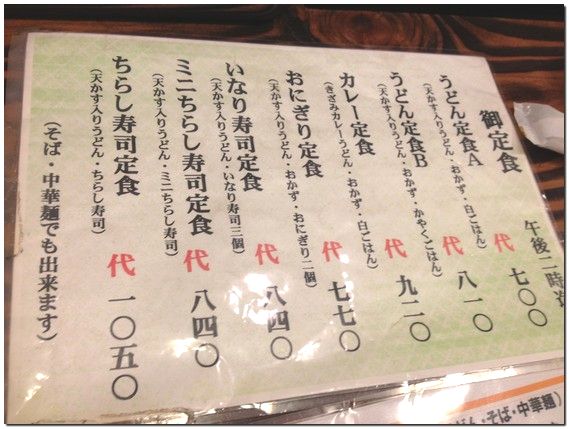 御定食
午後二時
うどん定食A
(天かす入りうどん・おかず・白ごはん)
代 七〇〇
うどん定食B
(天かす入りうどん・おかず・かやくごはん)
代 八一〇
カレー定食
(きざみカレーうどん・おかず・白ごはん)
代 九二〇
おにぎり定食
(天かす入りうどん・おかず・おにぎり二個)
代 七七〇
いなり寿司定食
(天かす入りうどん・いなり寿司三個)
代 八四〇
ミニちらし寿司定食
(天かす入りうどん・ミニちらし寿司)
代 八四〇
ちらし寿司定食
(天かす入りうどん・ちらし寿司)
代 一〇五〇
(そば・中華麺でも出来ます)
ん・そば・中華麺)